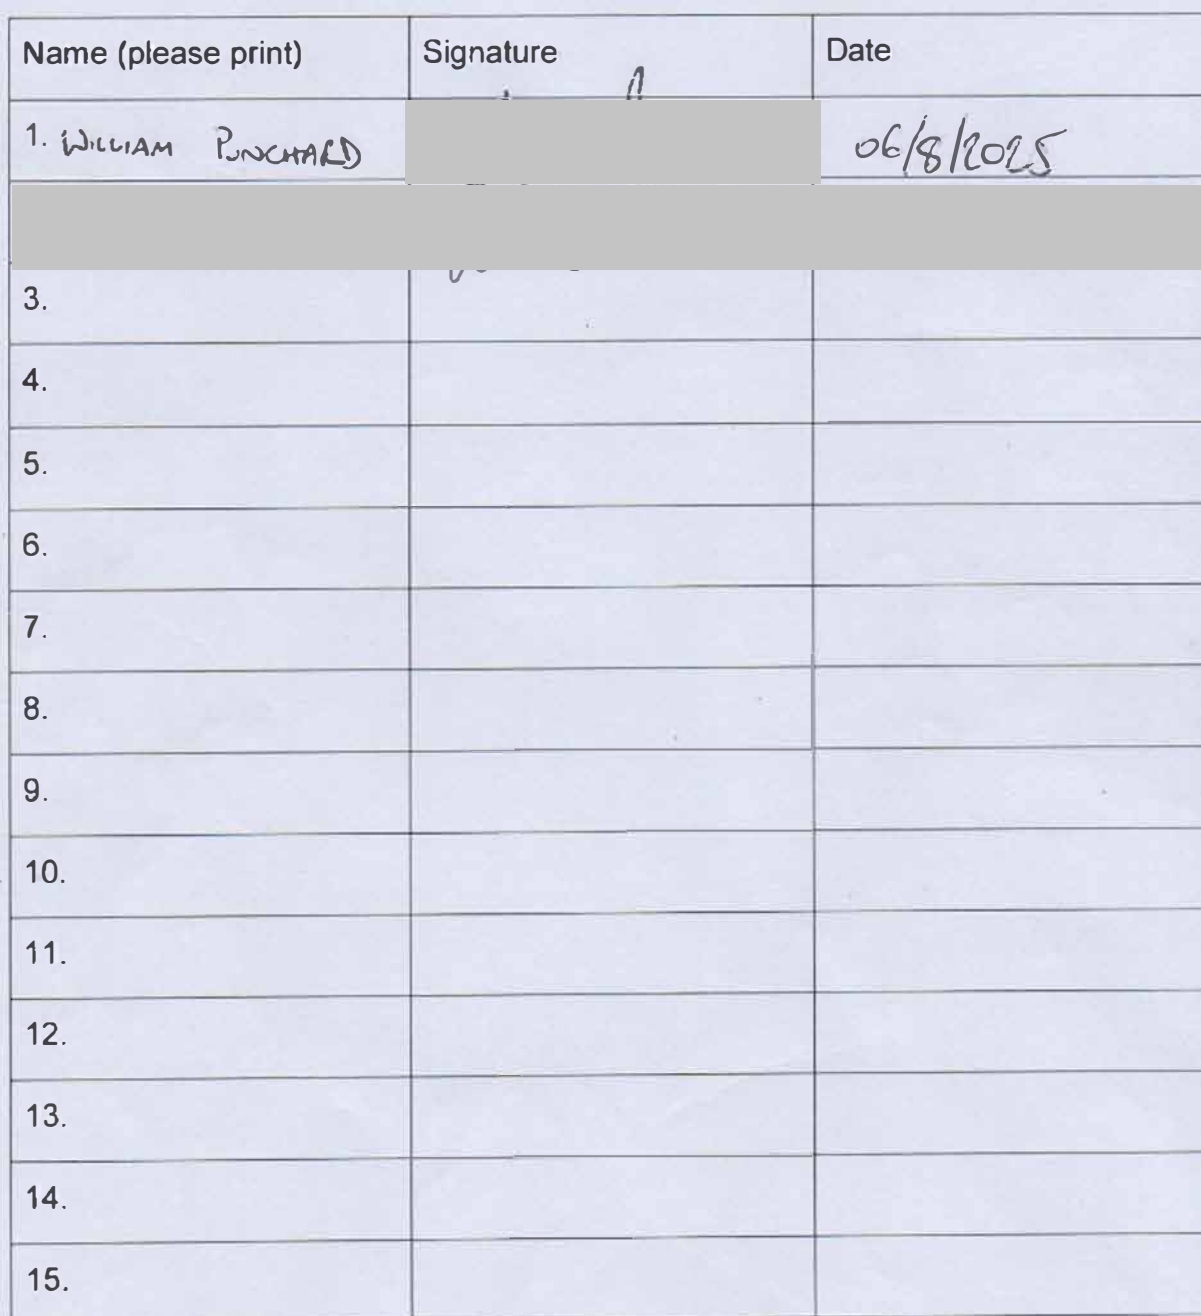 Name (please print) Signature Date
1. WILLIAM PUNCHARD 06/8/2025
3.
4.
5.
6.
7.
8.
9.
10.
11.
12.
13.
14.
15.